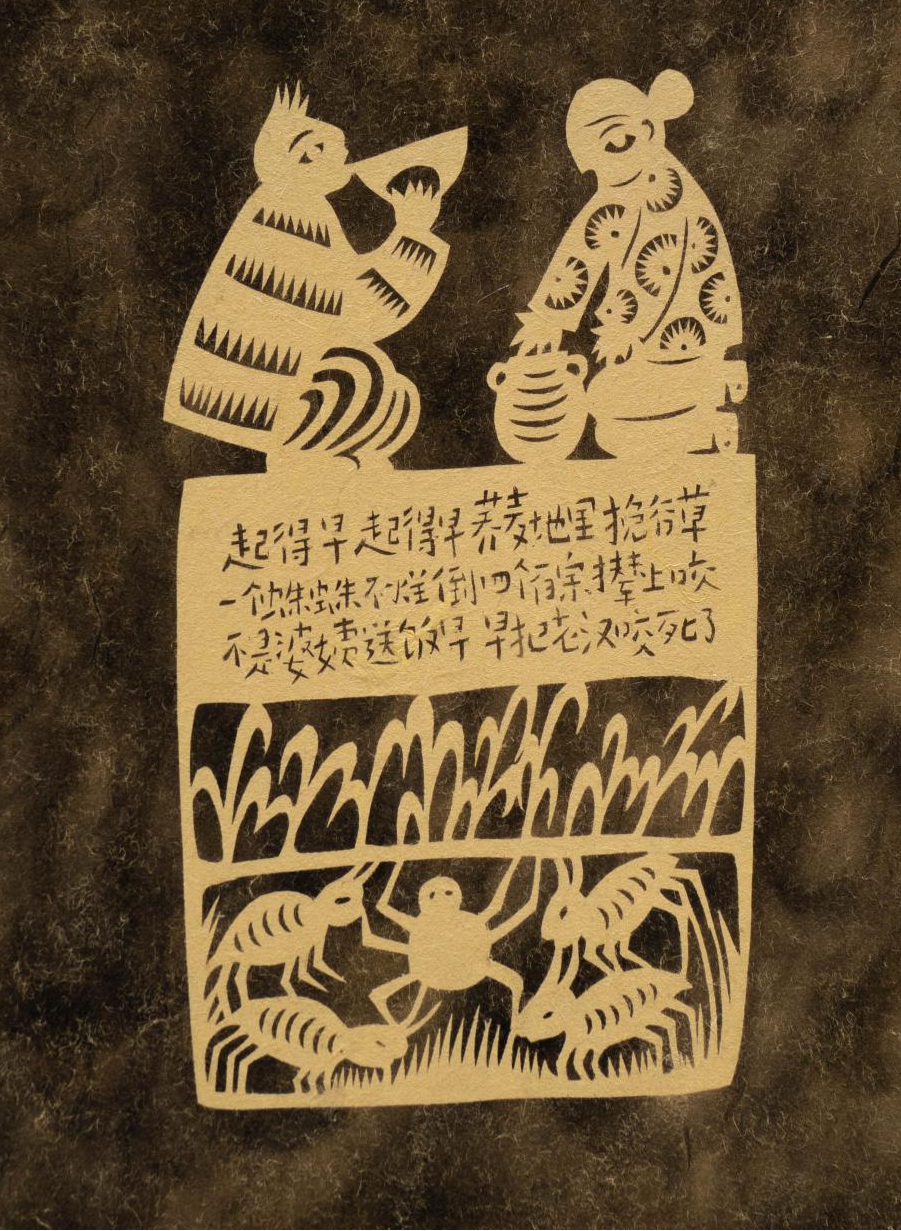 起得早起得早荞麦地里挽谷草
一个蜘蛛不 倒四个 上咬
不是婆姨送饭早早把老汉咬死了